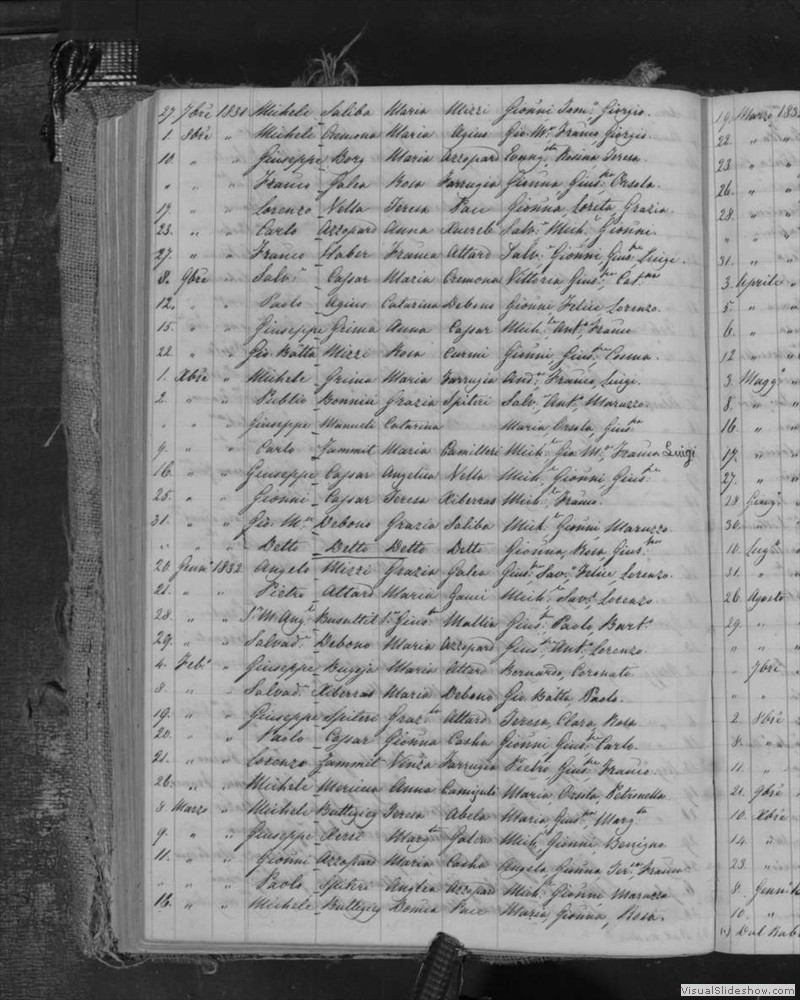 27. 7bre 1831 Michele Saliba Maria Mizzi Gionni Tom.o Giorgio.
1. 8bre " Michele Cremona Maria Agius Gio. M.a Franco Giorgio.
10. " " Giuseppe Borg Maria Azzopard Rosina, Teresa.
" " " Franco Galea Rosa Farrugia Gionna Gius.pa Orsola.
17. " " Lorenzo Vella Teresa Pace Gionna, Loreta, Grazia.
23. " " Carlo Azzopard Anna Xuereb Salv.e Mich.e Gionni.
27. " " Franco Haber Franca Attard Salv.e Gionni, Gius.pe Luigi.
8. 9bre " Salv.e Cassar Maria Cremona Vittoria Gius.pa Cat.na
12. " " Paolo Agius Catarina Debono Gionni, Felice Lorenzo.
15. " " Giuseppe Grima Anna Cassar Mich.le Ant.o Franco
22 " " Gio. Batta Mizzi Rosa Curmi Gionni, Gius.pe Cosma.
1. Xbre " Michele Grima Maria Farrugia And.a Franco, Luigi.
2. " " Publio Bonnici Grazia Spiteri Salv.e Ant.o Maruzzo.
" " " Giuseppe Mamuli Catarina Maria Orsola Gius.pa
9. " " Carlo Zammit Maria Camilleri Mich.le Gio M.a Franco Luigi
16. " " Giuseppe Cassar Angelica Vella Mich.le Gionni Gius.pe
25. " " Gionni Cassar Teresa Xiberras Mich.le Franco.
31. " " Gio. M.a Debono Grazia Saliba Mich.le Gionni Maruzzo.
" " " Detto Detto Detto Detto Gionna, Rosa, Gius.pa
20. Genn.o 1832 Angelo Mizzi Grazia Galea Gius.pe Sav.o Felice Lorenzo.
21. " " Pietro Attard Maria Gauci Mich.le Sav.o Lorenzo
28. " " S.r M. Ang.o Busuttil S.ra Gius.pa Mallia Gius.pe Paolo, Bart.o
29. " " Salvad.e Debono Maria Azzopard Gius.pe Ant.o Lorenzo.
4. Feb.o " Giuseppe Bugeja Maria Attard Bernardo, Coronato.
8. " " Salvad.e Xiberras Maria Debono Gio Batta, Paolo.
19. " " Giuseppe Spiteri Graz.la Attard Teresa, Clara, Rosa
20. " " Paolo Cassar Gionna Casha Gionni Gius.pe Carlo.
21. " " Lorenzo Zammit Vinza Farrugia Pietro Gius.pe Franco.
26. " " Michele Mercieca Anna Camizuli Maria, Orsola, Petronella
8. Marzo " Michele Buttigieg Teresa Abela Maria Gius.pa Marg.ta
9. " " Giuseppe Xerri Marg.ta Galea Mich.e Gionni Benigno
11. " " Gionni Azzopard Maria Casha Angela, Gionna Ter.sa Franca
" " " Paolo Spiteri Anglica Azzopard Mich.le Gionni Maruzzo
18. " " Michele Buttigieg Domca Pace Maria, Gionna, Rosa.
19. Marzo 183
22. " "
23. " "
26. " "
28. " "
" " "
31. " "
3. Aprile "
5. " "
6. " "
12 " "
3. Magg.o
8. " "
16. " "
17. " "
27. " "
28 Giug.o
30. "
10. Lug.o
31. " "
26. Agosto
29. " "
" " "
" 7bre
" "
2. 8bre
8. "
11. "
21. 9bre
10. Xbre
14. "
23. "
8. Genn
10. "
Dal Bab
VisualSlideshow.com